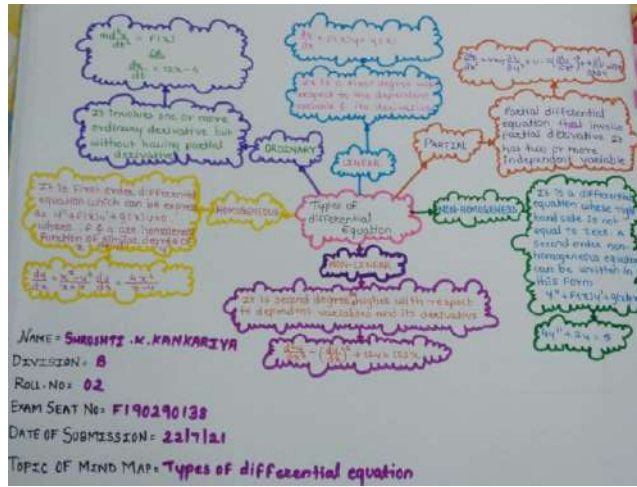 md²x/dt² = f(x)
OR
dx/dt = 12x-4
It involves one or more
ordinary derivative but
without having partial
derivative
ORDINARY
It is a first degree with
respect to the dependent
variable & its derivative
LINEAR
Partial differential
equation that involve
partial derivative. It
has two or more
independent variable
PARTIAL
It is first order differential
equation which can be
function of
HOMOGENEOUS
Types of
differential
Equation
NON-HOMOGENEOUS
It is a differential
equation whose right
hand side is not
equal to zero. A
second order non-
homogeneous equation
can be written in
this form
4y" + 2y = 5
NON-LINEAR
It is second degree higher with respect
to dependent variables and its derivative
NAME = SHRUSHTI .K. KANKARIYA
DIVISION = B
ROLL.NO= 02
EXAM SEAT NO= F190290138
DATE OF SUBMISSION= 22/7/21
TOPIC OF MIND MAP= Types of differential equation